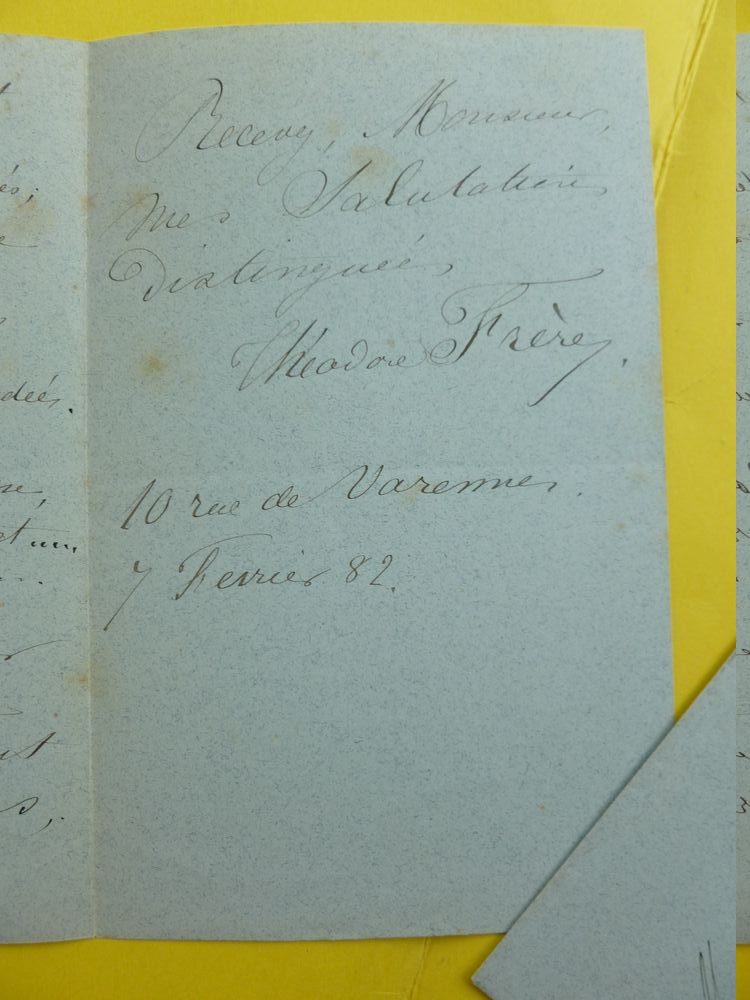 Recevez, Monsieur,
mes Salutations
Distinguées
Théodore Frère
10 rue de Varennes.
7 Fevrier 82.
és,
dées.
et